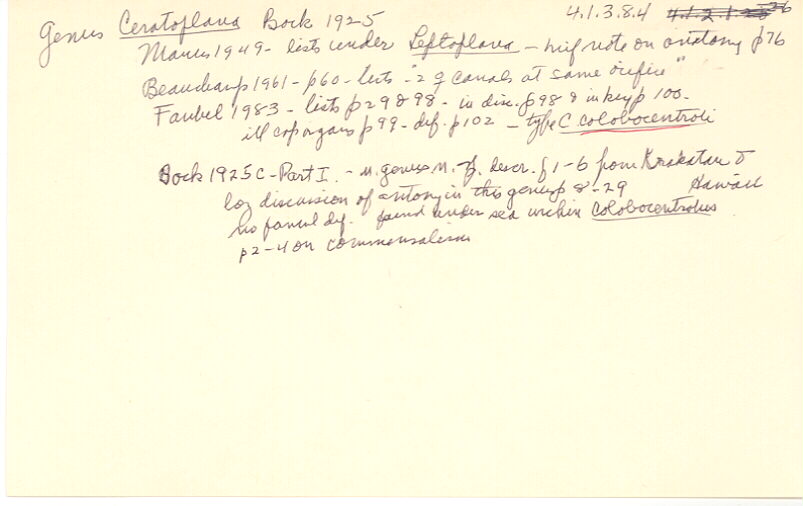 Genus Ceratoplana Bock 1925 4.1.3.8.4
Marcus 1949 - lists under Leptoplana - brief note on anatomy p76
Beauchamp 1961 - p60 - lists - "2 ♀ canals at same orifice"
Faubel 1983 - lists p29 & 98 - in disc. p98 & in key p 100 -
ill cop organs p99 - def. p102 - type C colobocentroti
Bock 1925C - Part I. - n. genus n. descr. p1-6 from Krakatau &
Hawaii
long discussion of anatomy in this genus p 8-29
no formal def. found under sea urchin Colobocentrotus
p2-4 on commensalism